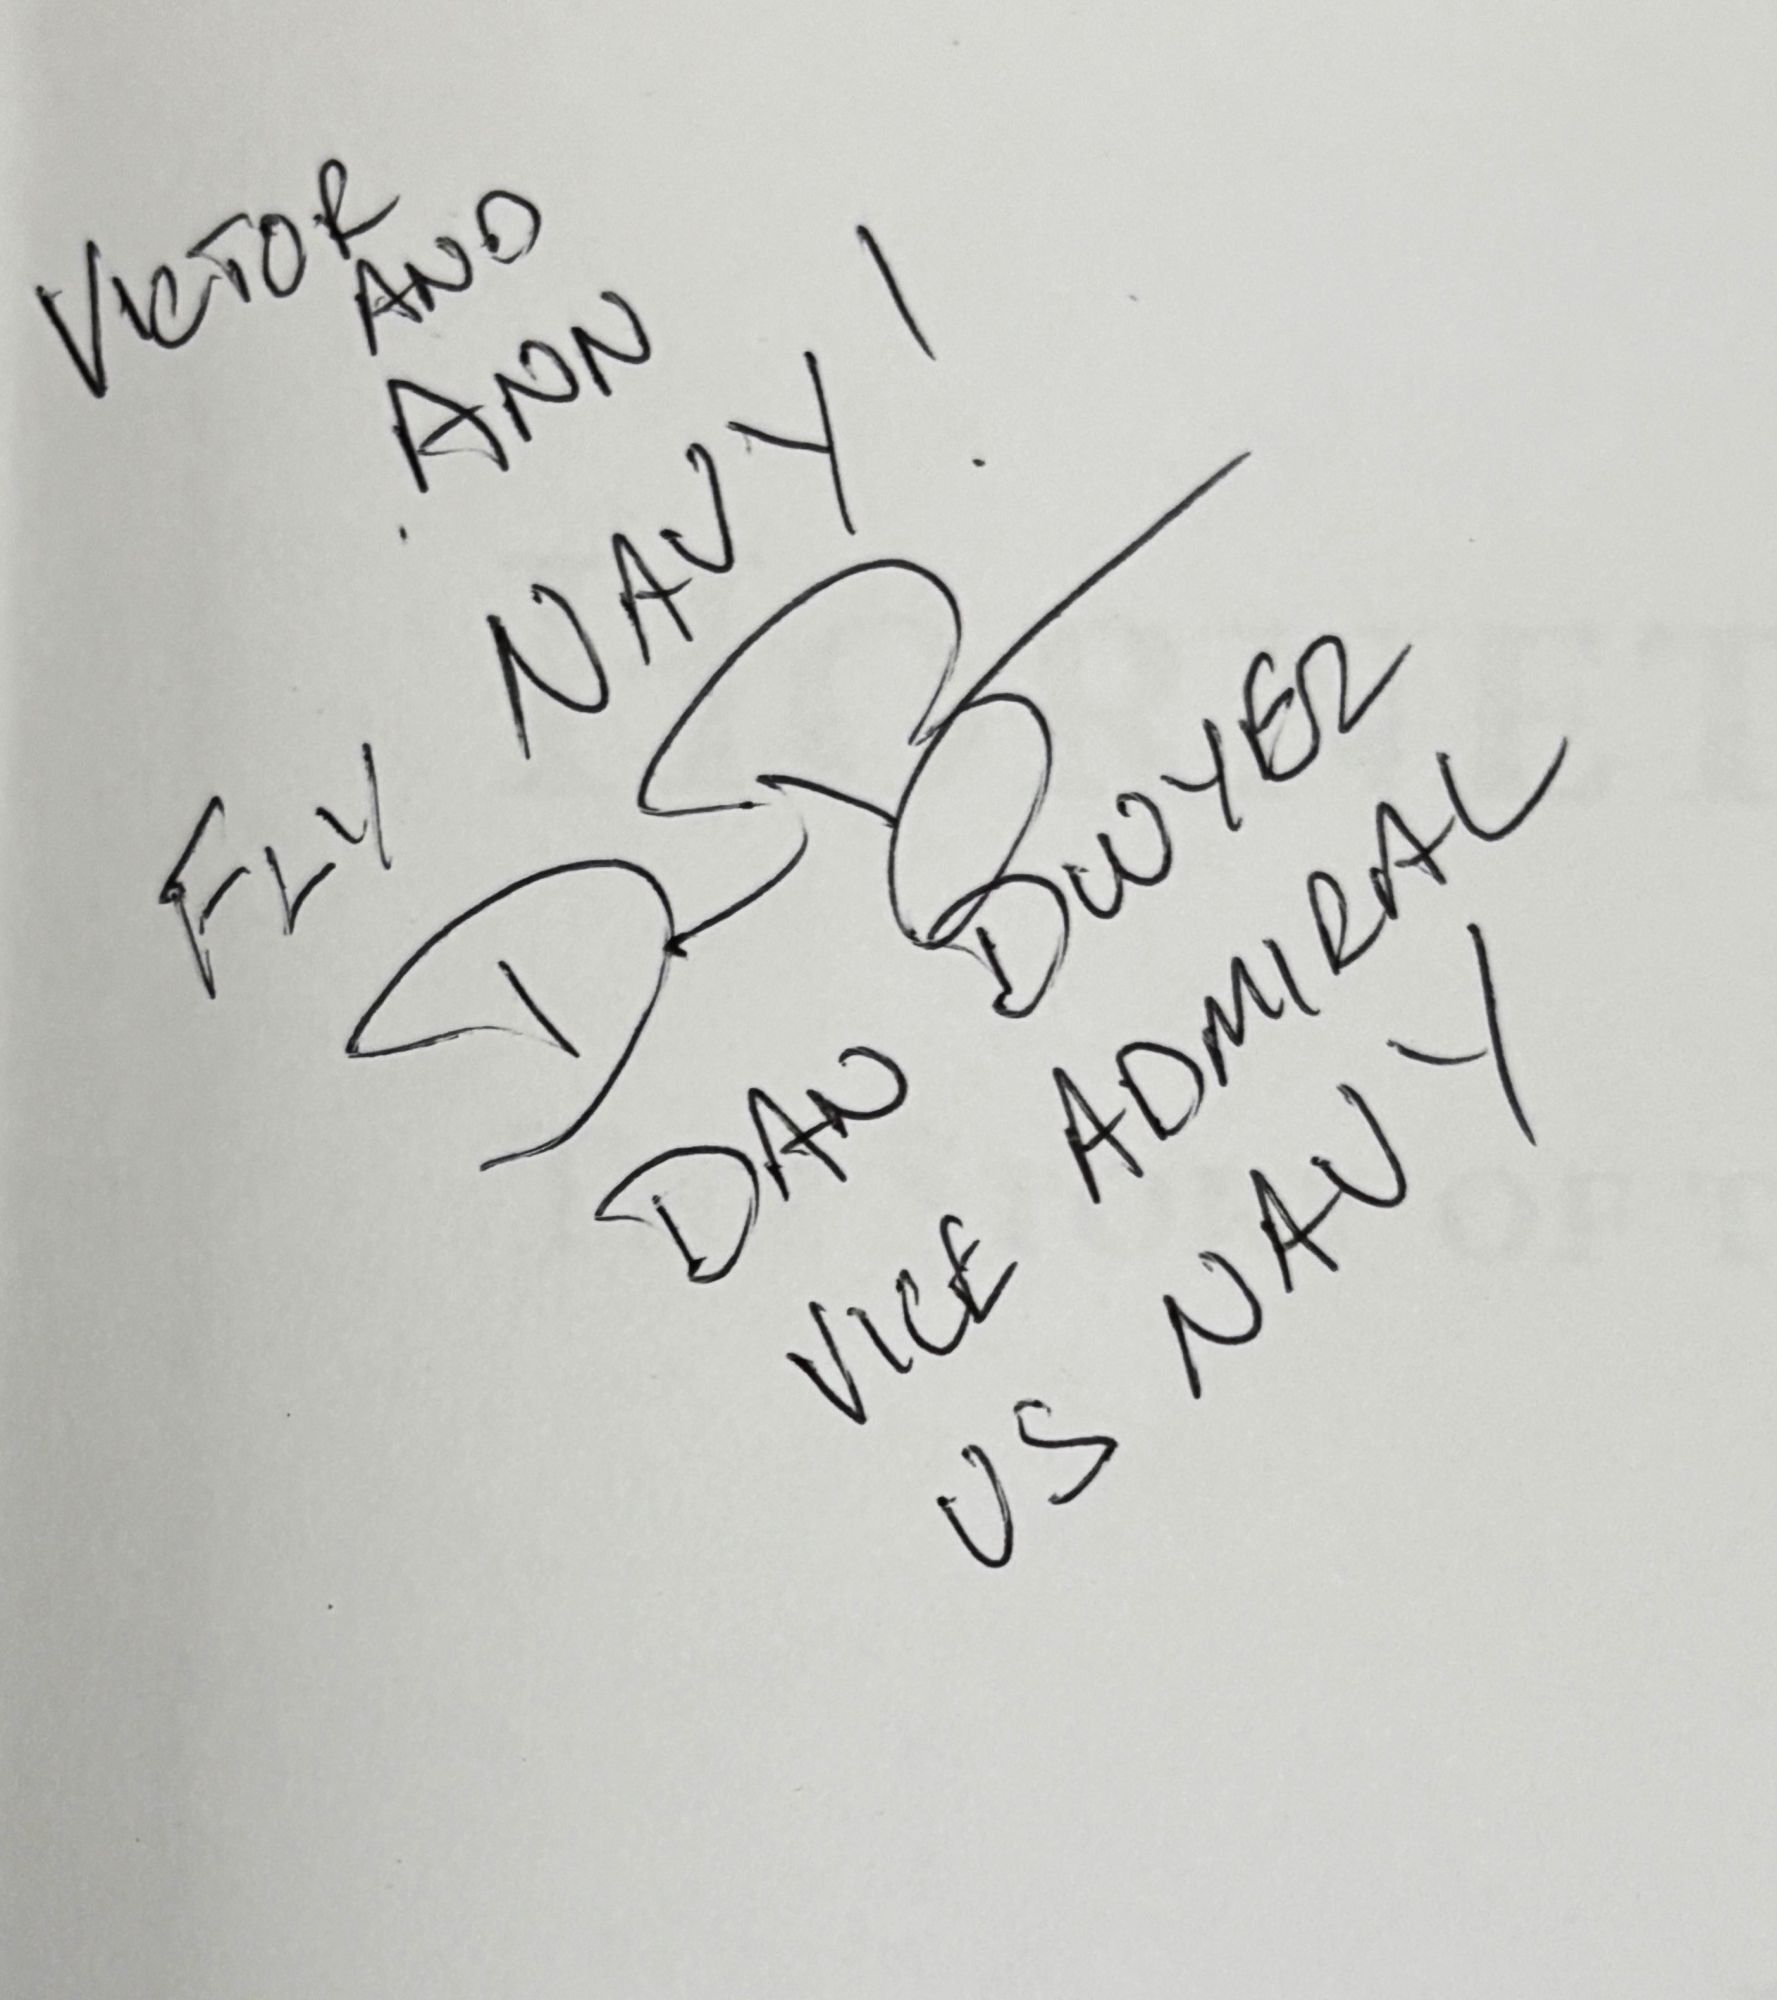 VICTOR
AND
ANN
FLY NAVY!
DAN DWYER
VICE ADMIRAL
US NAVY